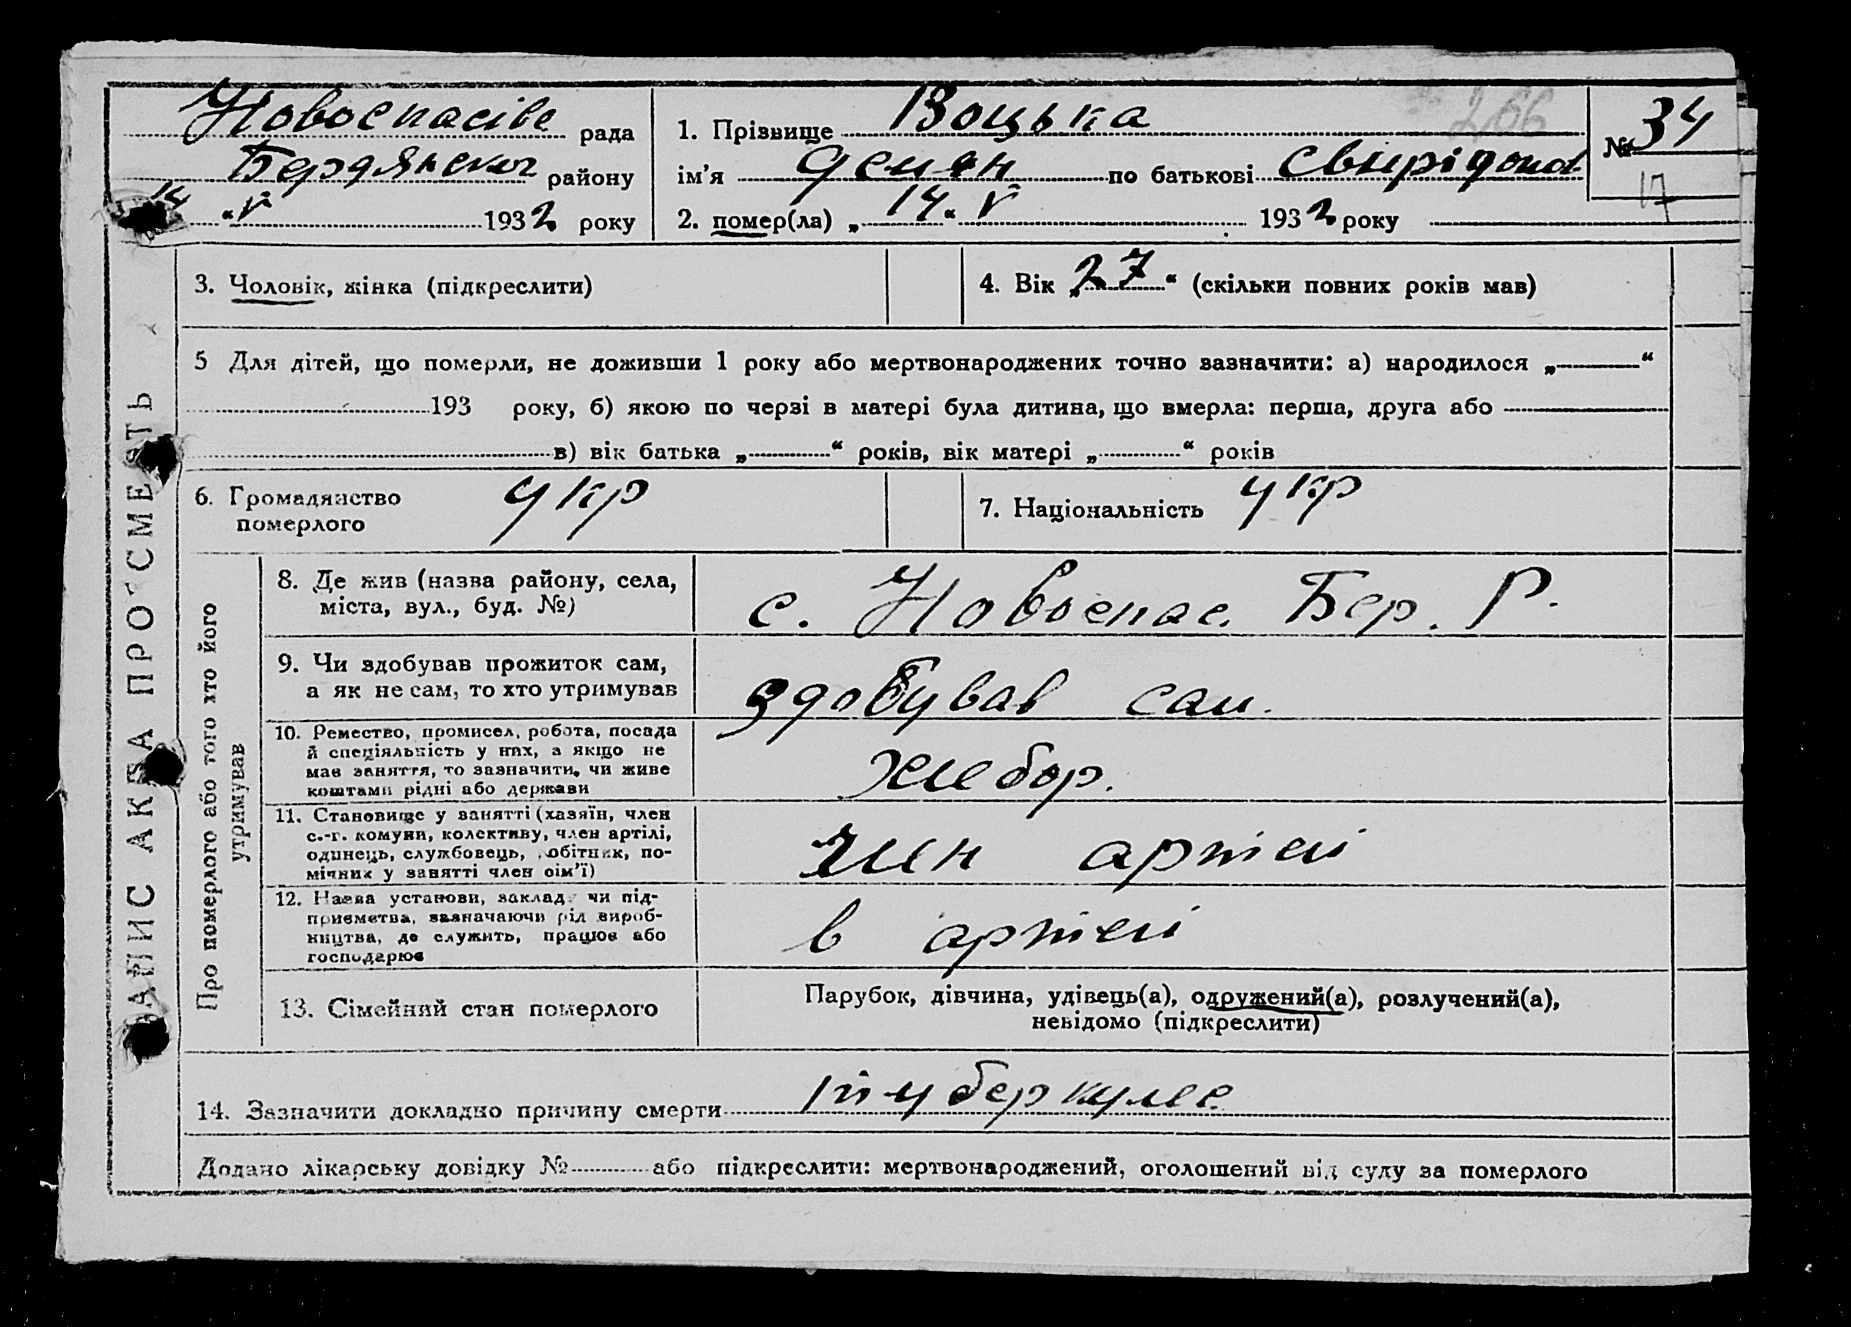 Новоспасівс рада
Бердянског району
14 "V 1932 року
1. Прізвище Воцька
ім'я Демян по батькові Свирідонов
2. помер(ла) „14“ V 1932 року
266
№ 34
17
ЗАПИС АКВА ПРО СМЕРТЬ
3. Чоловік, жінка (підкреслити)
4. Вік „27“ (скільки повних років мав)
5 Для дітей, що померли, не доживши 1 року або мертвонароджених точно зазначити: а) народилося „ “
193 року, б) якою по черзі в матері була дитина, що вмерла: перша, друга або
в) вік батька „ “ років, вік матері „ “ років
6. Громадянство укр
померлого
7. Національність укр
Про померлого або того хто його
утримував
8. Де жив (назва району, села,
міста, вул., буд. №)
с. Новоспас. Бер. Р.
9. Чи здобував прожиток сам,
а як не сам, то хто утримував
здобував сам.
10. Ремество, промисел, робота, посада
й спеціяльність у них, а якщо не
мав заняття, то зазначити, чи живе
коштами рідні або держави
хлебор.
11. Становище у занятті (хазяїн, член
с.-г. комуни, колективу, член артілі,
одинець, службовець, робітник, по-
мічник у занятті член сім'ї)
член артілі
12. Назва установи, закладу чи під-
приємства, зазначаючи рід вироб-
ництва, де служить, працює або
господарює
в артілі
13. Сімейний стан померлого
Парубок, дівчина, удівець(а), одружений(а), розлучений(а),
невідомо (підкреслити)
14. Зазначити докладно причину смерти туберкулес
Додано лікарську довідку № або підкреслити: мертвонароджений, оголошений від суду за померлого